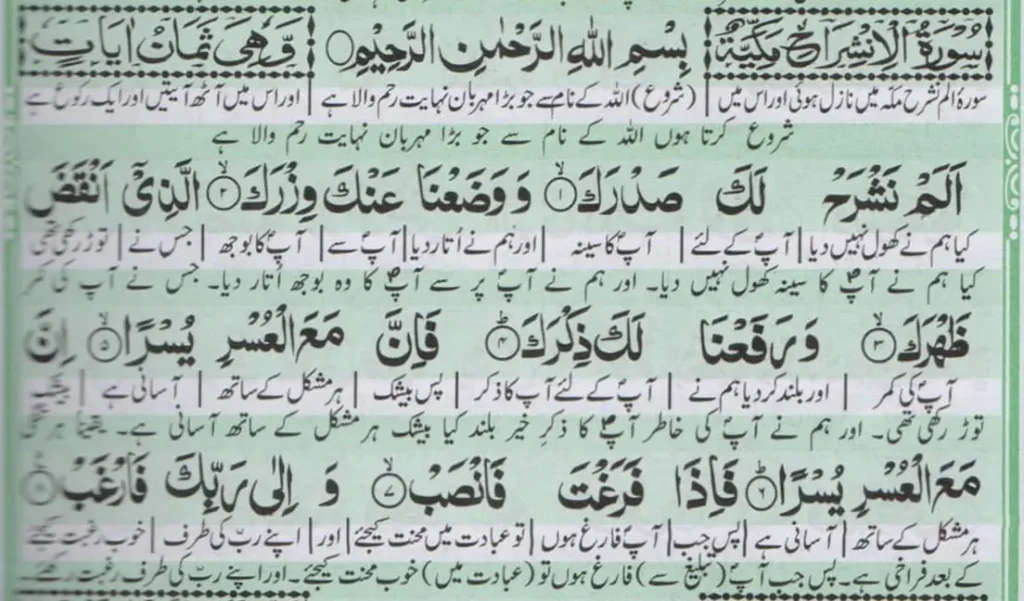 سُوْرَةُ الْاِنْشِرَاحِ مَكِّيَّةٌ بِسْمِ اللهِ الرَّحْمٰنِ الرَّحِيْمِ وَّهِيَ ثَمَانُ اٰيَاتٍ
سورۂ الم نشرح مکہ میں نازل ہوئی اور اس میں | (شروع) اللہ کے نام سے جو بڑا مہربان نہایت رحم والا ہے | اور اس میں آٹھ آیتیں اور ایک رکوع ہے
شروع کرتا ہوں اللہ کے نام سے جو بڑا مہربان نہایت رحم والا ہے
اَلَمْ نَشْرَحْ لَكَ صَدْرَكَ ۙ﴿۱﴾ وَوَضَعْنَا عَنْكَ وِزْرَكَ ۙ﴿۲﴾ الَّذِيْٓ اَنْقَضَ
کیا ہم نے کھول نہیں دیا | آپؐ کے لئے | آپؐ کا سینہ | اور ہم نے اُتار دیا | آپؐ سے | آپؐ کا بوجھ | جس نے | توڑ رکھی تھی
کیا ہم نے آپؐ کا سینہ کھول نہیں دیا۔ اور ہم نے آپؐ پر سے آپؐ کا وہ بوجھ اُتار دیا۔ جس نے آپؐ کی کمر
ظَهْرَكَ ۙ﴿۳﴾ وَرَفَعْنَا لَكَ ذِكْرَكَ ؕ﴿۴﴾ فَاِنَّ مَعَ الْعُسْرِ يُسْرًا ۙ﴿۵﴾ اِنَّ
آپؐ کی کمر | اور بلند کر دیا ہم نے | آپؐ کے لئے آپؐ کا ذکر | پس بیشک | ہر مشکل کے ساتھ | آسانی ہے | بیشک
توڑ رکھی تھی۔ اور ہم نے آپؐ کی خاطر آپؐ کا ذکرِ خیر بلند کیا بیشک ہر مشکل کے ساتھ آسانی ہے۔ یقیناً ہر
مَعَ الْعُسْرِ يُسْرًا ؕ﴿۶﴾ فَاِذَا فَرَغْتَ فَانْصَبْ ۙ﴿۷﴾ وَ اِلٰى رَبِّكَ فَارْغَبْ ﴿۸﴾
ہر مشکل کے ساتھ | آسانی ہے | پس جب | آپؐ فارغ ہوں | تو عبادت میں محنت کیجئے | اور | اپنے ربّ کی طرف | خوب رغبت کیجئے
کے بعد فراخی ہے۔ پس جب آپؐ (تبلیغ سے) فارغ ہوں تو (عبادت میں) خوب محنت کیجئے۔ اور اپنے ربّ کی طرف رغبت رکھئے۔